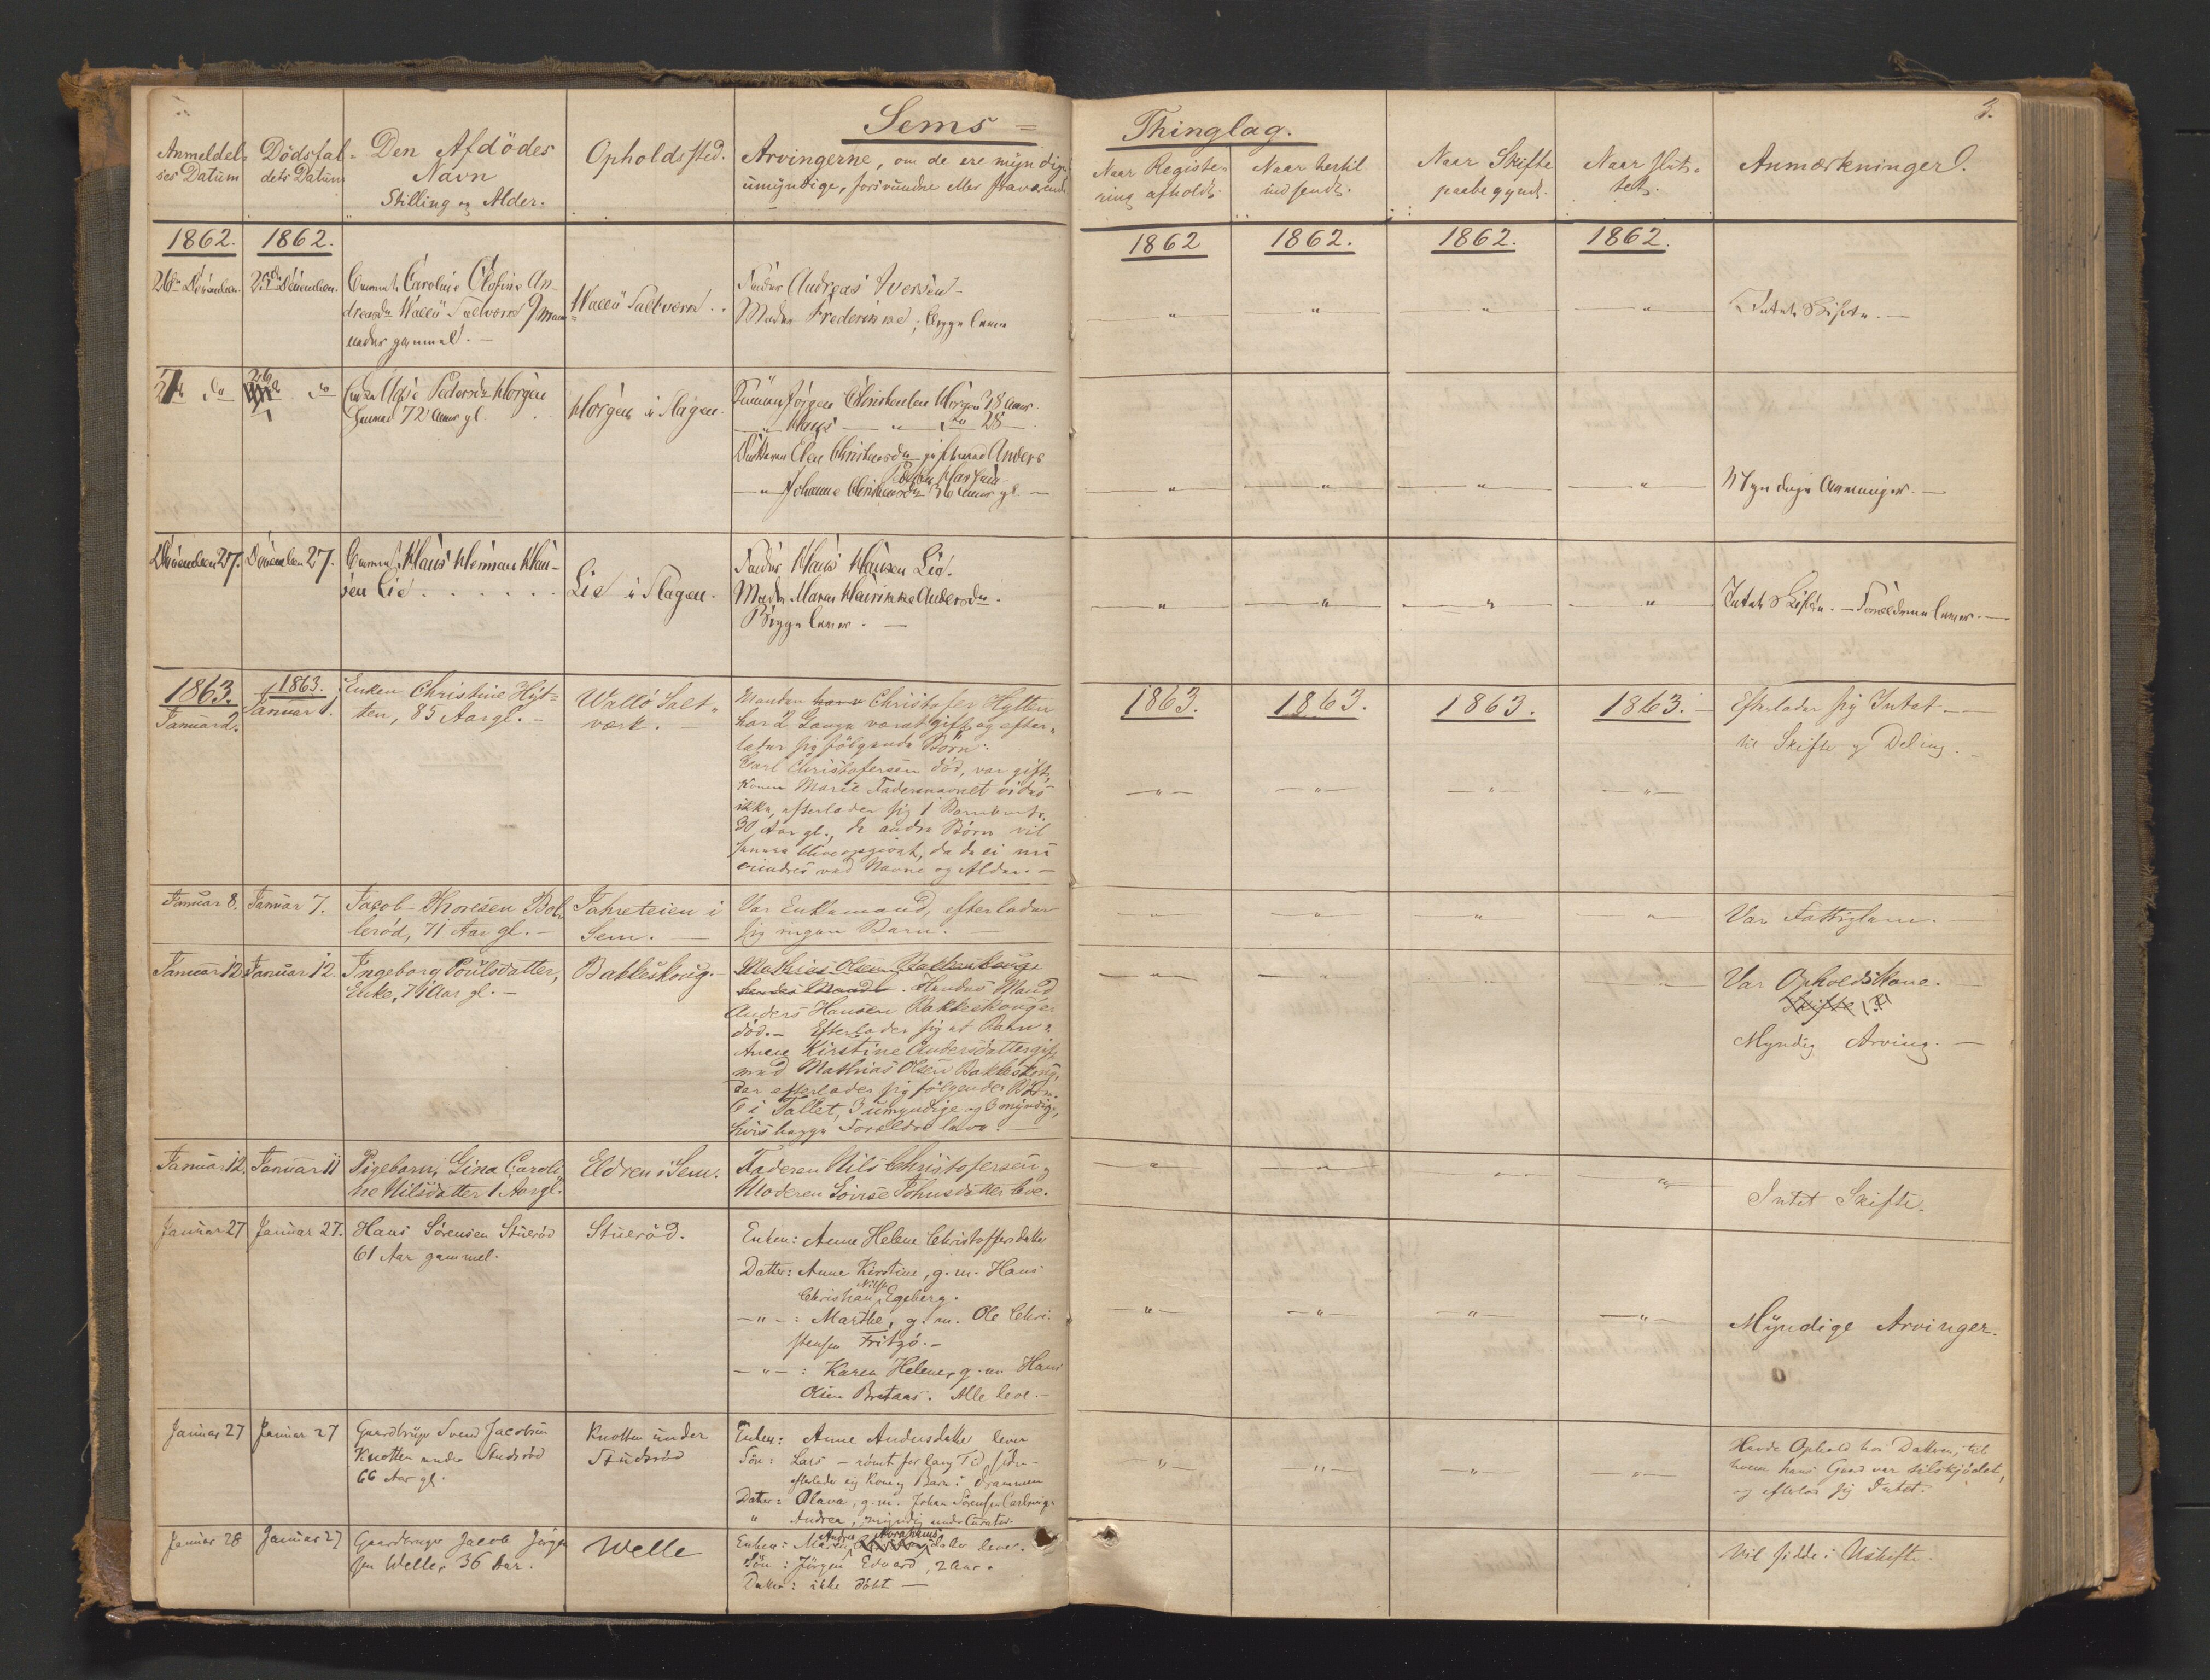 Sems = Thinglag.
3.
Anmeldel-
ses Datum
Dödsfal-
dets Datum
Den Afdödes
Navn
Stilling og Alder.
Opholdssted.
Arvingerne, om de ere myndige,
umyndige, forsvundne eller fraværende
Naar Registe-
ring afholdt.
Naar hertil
indsendt.
Naar Skifte
paabegyndt.
Naar slut-
tet.
Anmærkninger.
1862. 1862.
1862 1862. 1862. 1862.
26de December. 25de December.
Barnet Caroline Olofine An-
dreasdr Wallö Saltværk 9 Maa-
neder gammel. —
Wallö Saltværk . .
Fader Andreas Iversen —
Moder Frederikke; begge lever
Intet Skifte. —
27de do 26 do
Pedersdr Horgen
72 Aar gl.
Horgen i Slagen
Jörgen Christensen Horgen 38 Aar.
— " Hans — " — do 28 —
Datteren Elen Christensdr gift med Anders
— " Johanne Christensdr 36 Aar gl. —
Myndige Arvinger. —
December 27. December 27.
Barnet Hans Herman Han-
sen Lie . . . . . .
Lie i Slagen.
Fader Hans Hansen Lie.
Moder Maren Andersdr.
Begge lever. —
Intet Skifte. — Forældrene lever. —
1863. 1863.
Januar 2. Januar 1.
Enken Christine Hyt-
ten, 85 Aar gl. —
Wallö Salt-
værk. —
Manden Christofer Hytten
har 2 Gange været gift og efter-
lader sig følgende Börn:
Carl Christofersen död, var gift,
Konen Marie Fadernavnet vides
ikke, efterlader sig 1 Barn
30 Aar gl., de andre Börn vil
senere blive opgivet, da de ei nu
erindres ved Navne og Alder. —
1863. 1863. 1863. 1863.
Efterlader sig Intet —
til Skifte og Deling. —
Januar 8. Januar 7.
Jacob Thoresen Bol-
leröd, 71 Aar gl. —
Jahreteien i
Sem. —
Var Enkemand, efterlader
sig ingen Barn. —
Var Fattiglem. —
Januar 12. Januar 12.
Ingeborg Poulsdatter,
Enke, 74 Aar gl. —
Bakkeskoug.
Mathias Olsen Bakkeskoug
hendes Mand. Hendes Mand
Anders Hansen Bakkeskoug er
död. — Efterlader sig et Barn:
Anne Kirstine Andersdatter gift
med Mathias Olsen Bakkeskoug,
der efterlader sig følgende Börn.
6 i Tallet, 3 umyndige og 3 myndige,
hvis begge Forældre leve. —
Var Opholdskone. —
Skifte
Myndig Arving. —
Januar 12. Januar 11
Pigebarn, Gina Caroli-
ne Nilsdatter 1 Aar gl.
Eldren i Sem.
Faderen Nils Christofersen,
Moderen Lovise Johnsdatter leve.
Intet Skifte.
Januar 27 Januar 27.
Hans Sörensen Stueröd
61 Aar gammel.
Stueröd.
Enken: Anne Helene Christoffersdatter
Datter: Anne Kirstine, g. m. Hans
Christian Nilsen Egeberg.
— " — : Marthe, g. m. Ole Chri-
stensen Fritzö. —
— " — : Karen Helene, g. m. Hans
Olsen Bretaas. Alle leve. —
Myndige Arvinger.
Januar 27 Januar 27
Gaardbruger Svend Jacobsen
Knotten under Studsröd
66 Aar gl.
Knotten under
Studsröd
Enken: Anne Andersdatter lever
Sön: Lars — römt for lang Tid siden —
efterlader sig Kone og Barn i Drammen
Datter: Olava, g. m. Johan Sörensen
" Andrea, myndig under Curator.
Havde Ophold hos Datteren, til
hvem hans Gaard var tilskjödet,
og efterlod sig Intet.
Januar 28 Januar 27
Gaardbruger Jacob Jörgen-
sen Welle, 36 Aar.
Welle
Enken: Maren Andrea Abrahamsdatter lever.
Sön: Jörgen Edvard, 2 Aar.
Datter: ikke döbt —
Vil sidde i Uskifte.